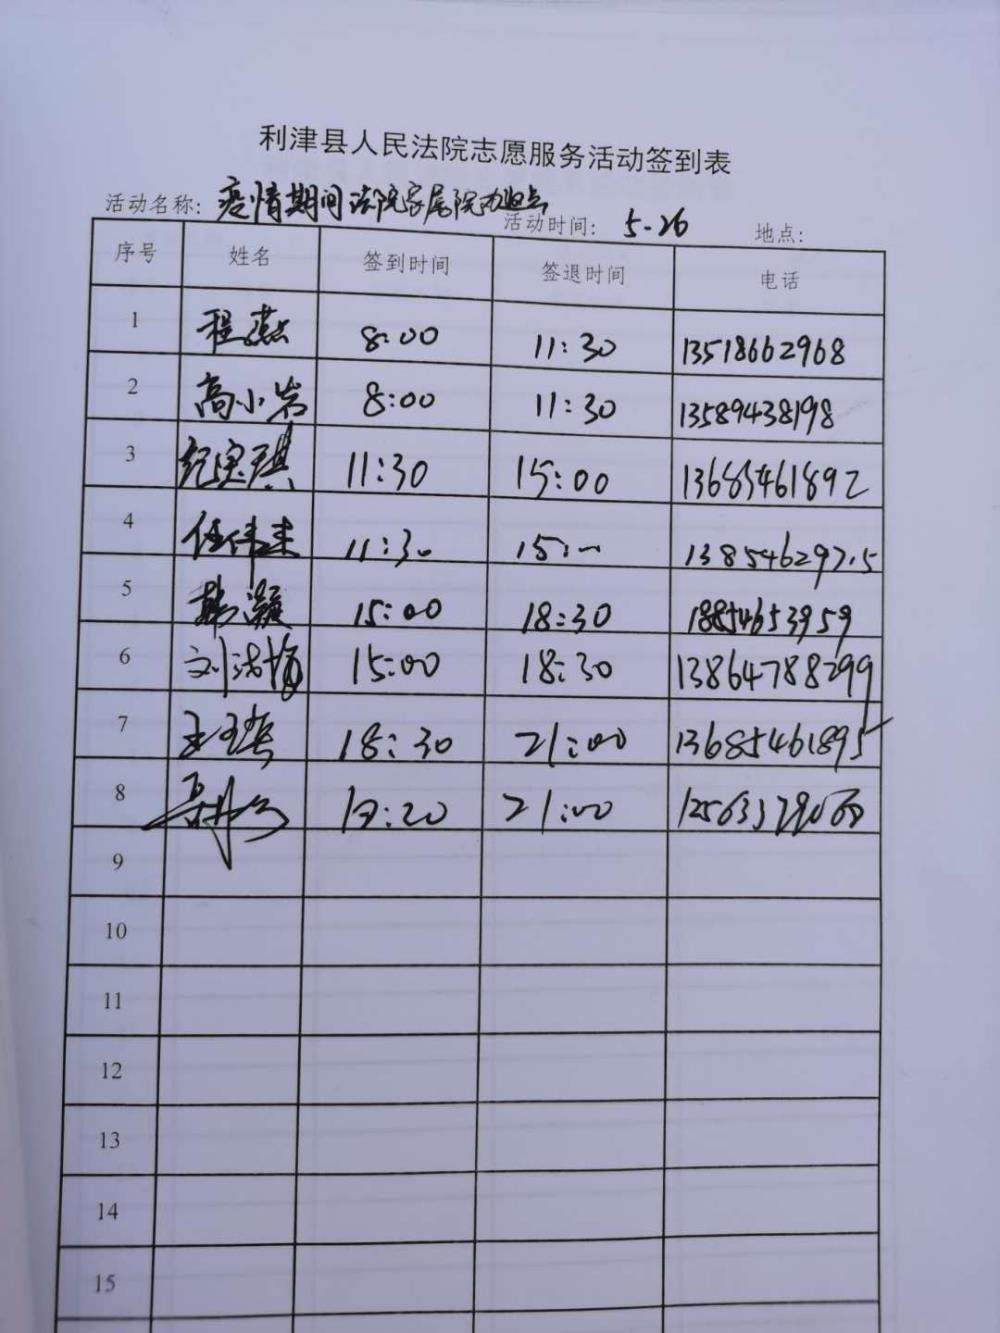 利津县人民法院志愿服务活动签到表
活动名称: 疫情期间法院家属院 活动时间: 5-26 地点:
序号 姓名 签到时间 签退时间 电话
1 程燕 8:00 11:30 13518662968
2 高小岩 8:00 11:30 13589438198
3 纪宝琪 11:30 15:00 13685461892
4 任伟来 11:30 15:00
5 韩灏 15:00 18:30 18854653959
6 刘洁 15:00 18:30 13864788299
7 王 18:30 21:00 13685461895
8 21:00
9
10
11
12
13
14
15